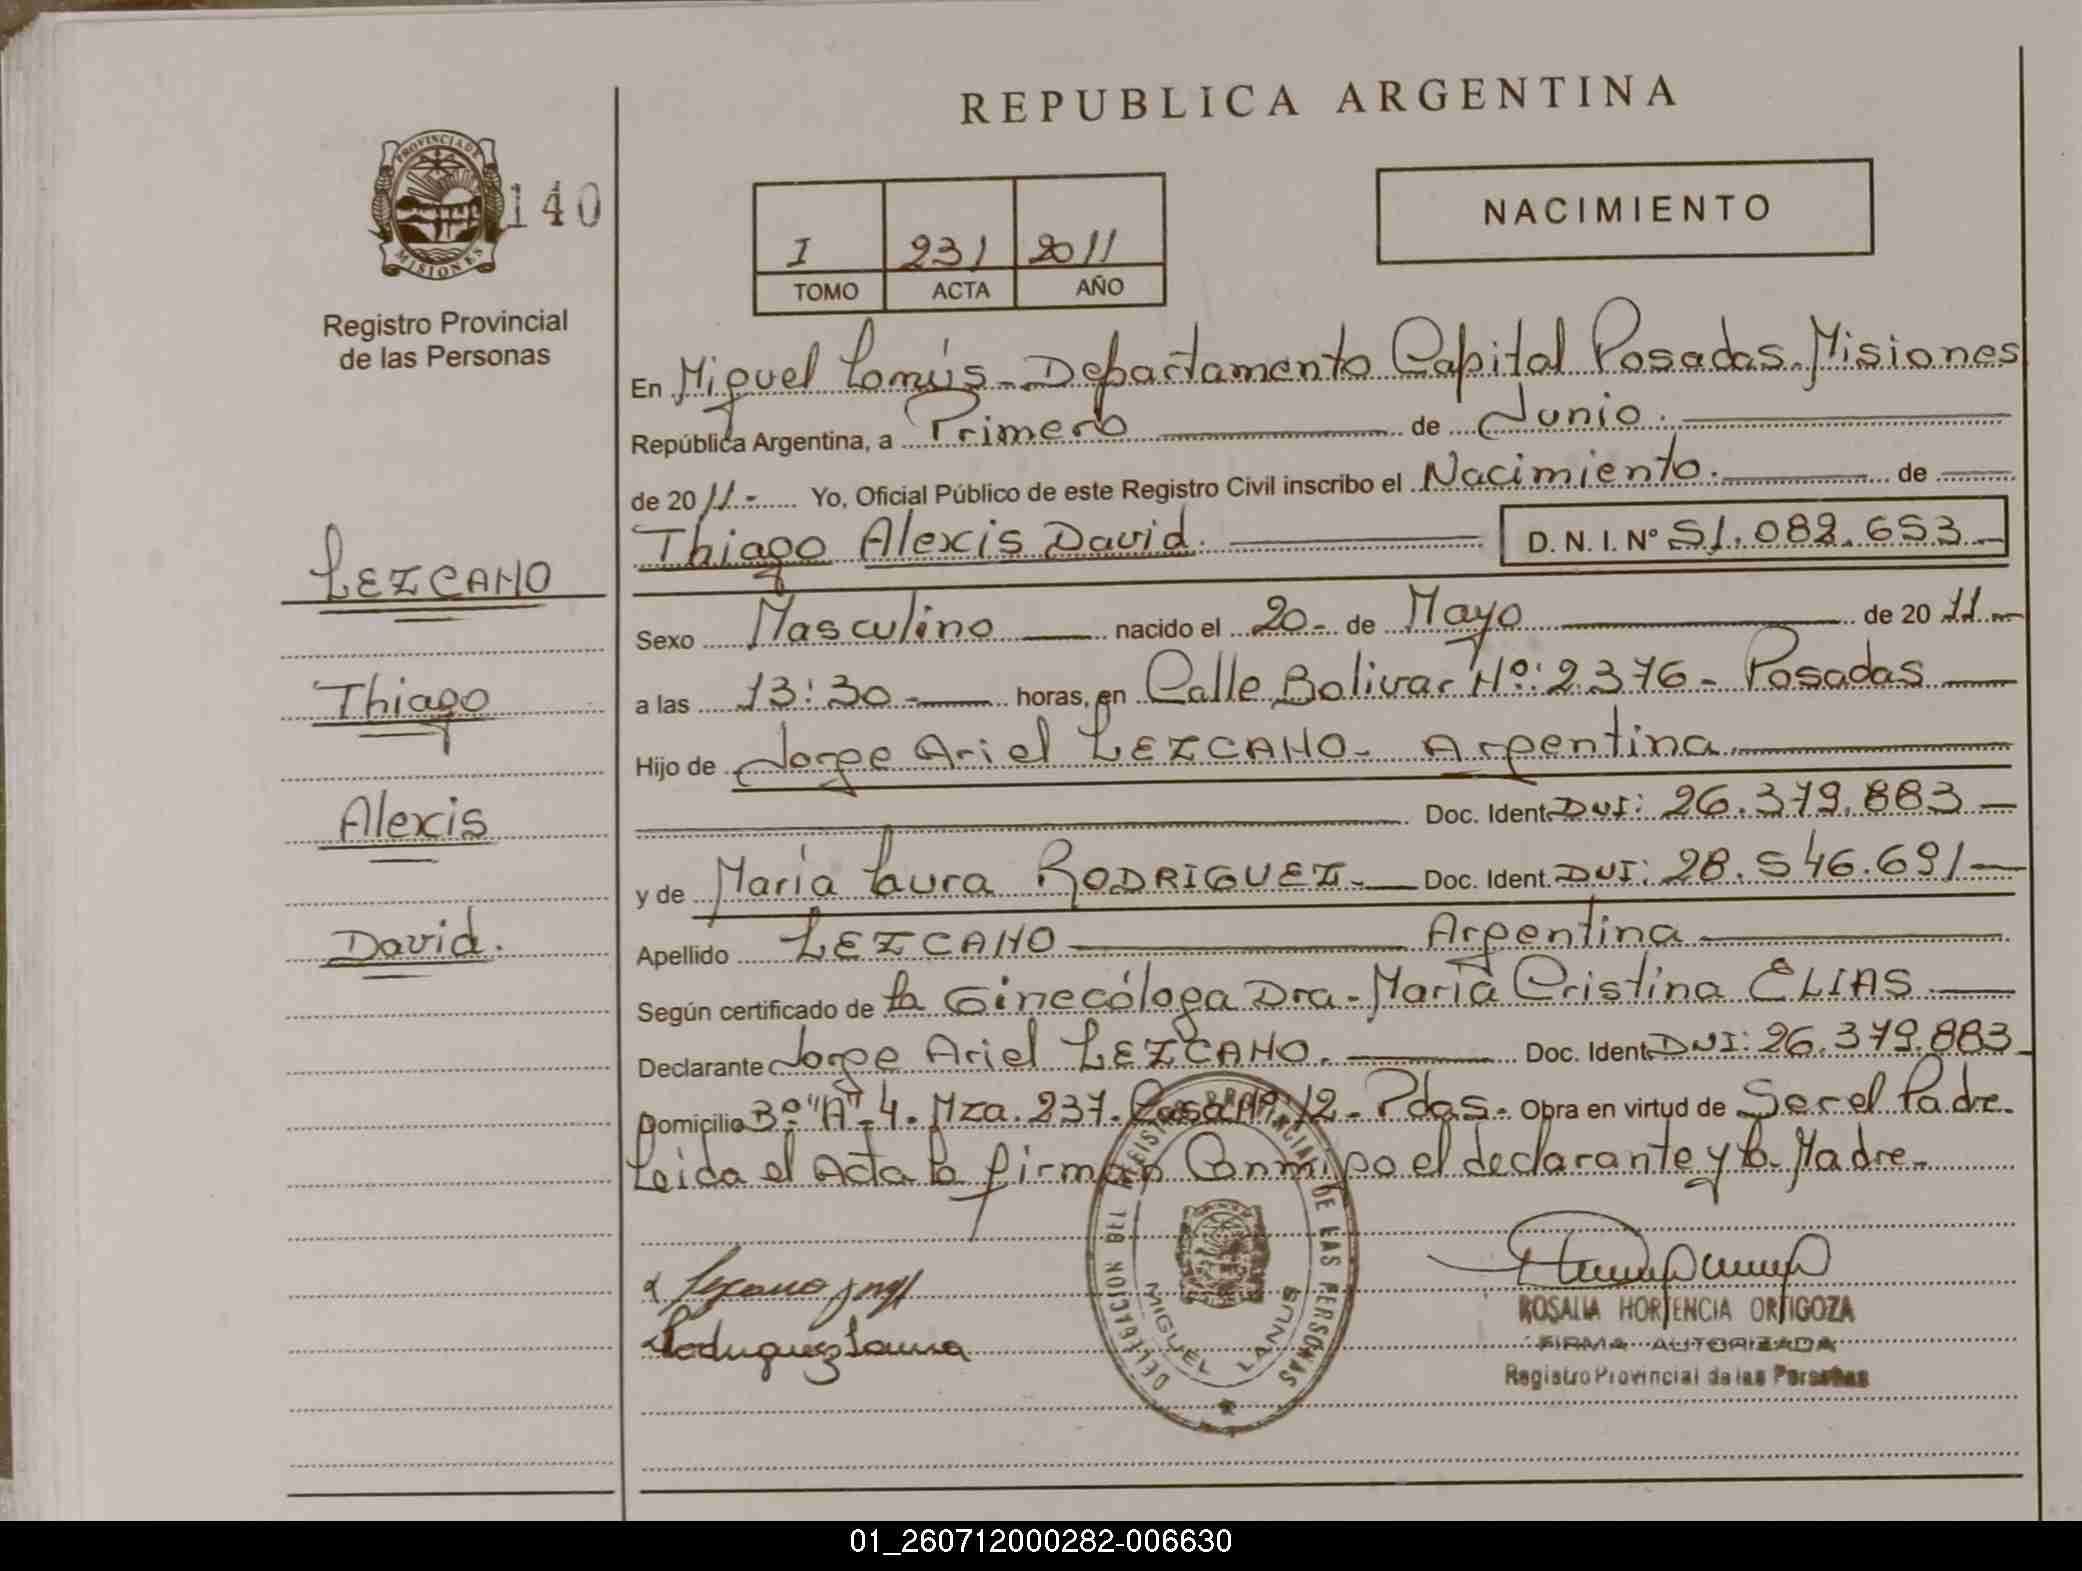 REPUBLICA ARGENTINA
PROVINCIA DE
MISIONES
140
Registro Provincial
de las Personas
I 231 2011
TOMO ACTA AÑO
NACIMIENTO
En Miguel Lanús - Departamento Capital Posadas. Misiones
República Argentina, a Primero de Junio.
de 20 11.- Yo, Oficial Público de este Registro Civil inscribo el Nacimiento. de
Thiago Alexis David. D. N. I. Nº 51.082.653
LEZCANO
Thiago
Alexis
David.
Sexo Masculino nacido el 20- de Mayo de 20 11.
a las 13:30.- horas, en Calle Bolivar Nº: 2376 - Posadas
Hijo de Jorge Ariel LEZCANO - Argentina
Doc. Ident. DNI: 26.379.883
y de María Laura RODRIGUEZ - Doc. Ident. DNI: 28.546.691
Apellido LEZCANO Argentina
Según certificado de la Ginecóloga Dra - María Cristina ELIAS
Declarante Jorge Ariel LEZCANO. Doc. Ident. DNI: 26.379.883
Domicilio Bº "A" - 4. Mza. 237. Casa Nº 12 - Pdas. Obra en virtud de Ser el Padre.
Leida el Acta la firman Conmigo el declarante y la Madre.
Rodriguez Laura
DELEGACION DEL REGISTRO PROVINCIAL DE LAS PERSONAS
MIGUEL LANUS
ROSALIA HORTENCIA ORTIGOZA
FIRMA AUTORIZADA
Registro Provincial de las Personas
01_260712000282-006630